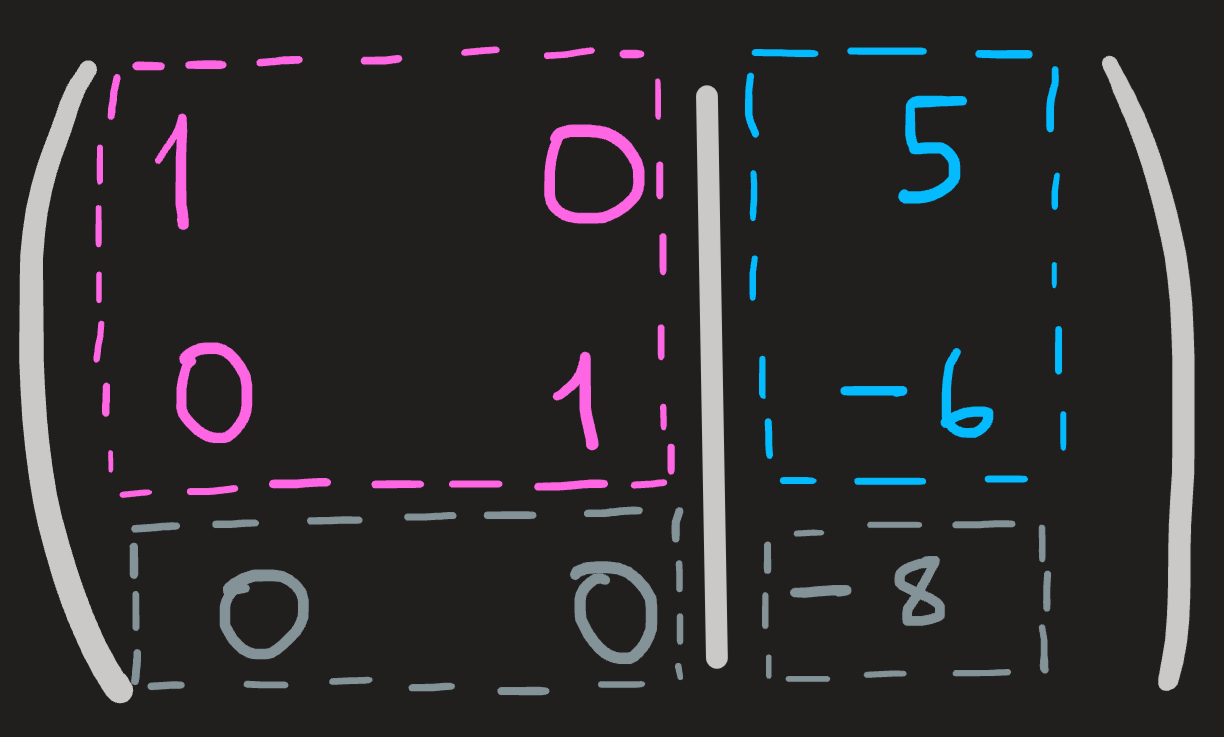 1 0 | 5
0 1 | -6
0 0 | -8